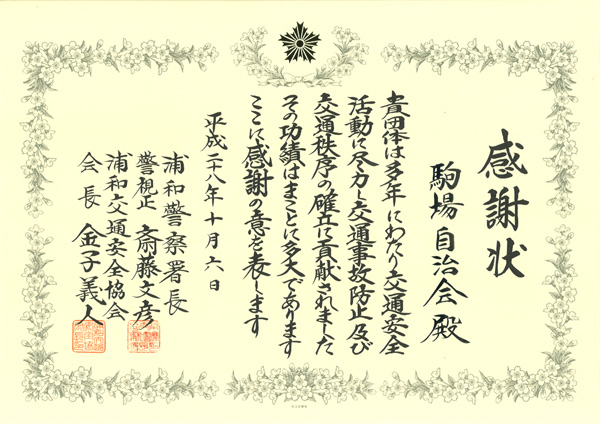 感謝状
駒場自治会殿
貴団体は多年にわたり交通安全
活動に尽力し交通事故防止及び
交通秩序の確立に貢献されました
その功績はまことに多大であります
ここに感謝の意を表します
平成二十八年十月六日
浦和警察署長
警視正 斎藤文彦
浦和交通安全協会
会長 金子義人